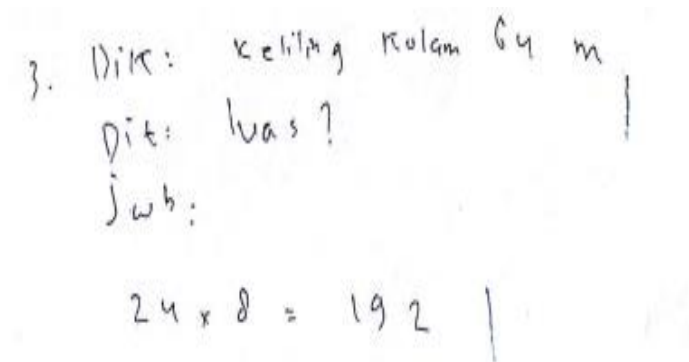 3. Dik: keliling kolam 64 m
Dit: luas?
jwb:
24 x 8 = 192